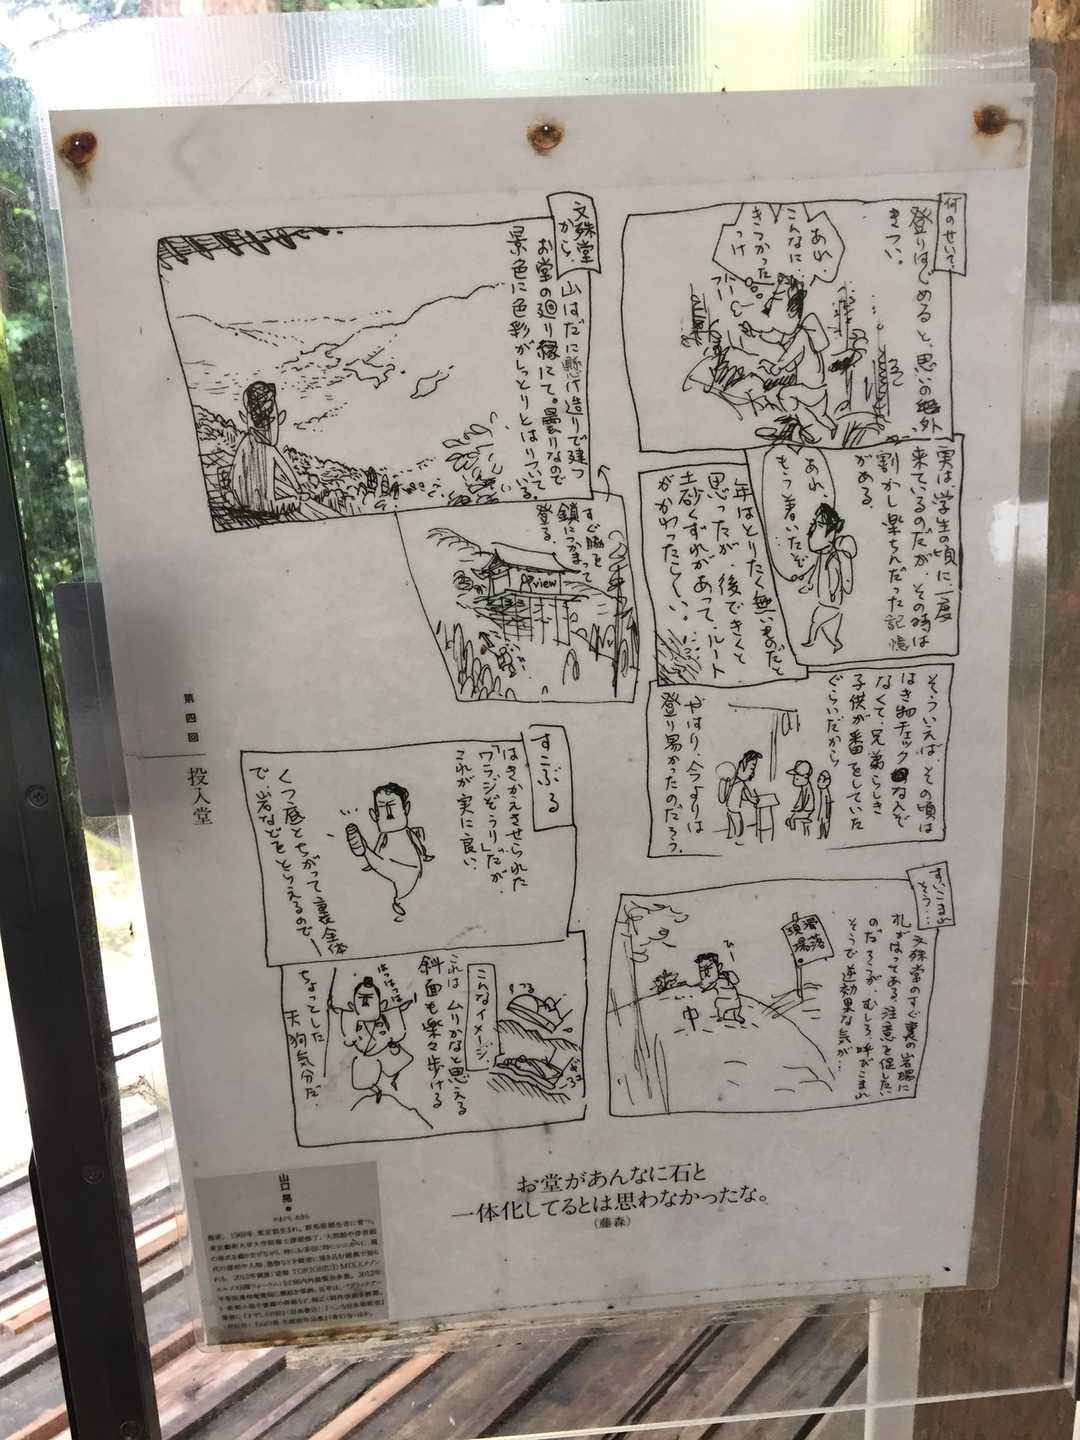 何のせいで、
登りはじめると、思いの外
きつい。
あれ、
こんなに
きつかった
っけ
実は、学生の頃に、一度
来ているのだが、その時は
割かし楽ちんだった記憶
がある。
あれ、
もう着いたぞ
年はとりたく無いものだと
思ったが、後できくと
土砂くずれがあって、ルート
がかわったらしい。
そういえば、その頃は
はき物チェック
なくて、兄弟らしき
子供が番をしていた
ぐらいだから
やはり、今よりは
登り易かったのだろう。
すいこまれ
そう…
文殊堂のすぐ裏の岩場に
札がはってある。注意を促したい
のだろうが、むしろ、呼びこまれ
そうで逆効果な気が…
滑落
現場
文殊堂
から
山はだに懸け造りで建つ
お堂の廻り縁にて。曇りなので
景色に色彩がしっとりとはりついて
いる。
すぐ脇を
鎖につかまって
登る。
view
すこぶる
はきかえさせられた
「ワラジぞうり」だが、
これが実に良い。
くつ底とちがって裏全体
で、岩などをとらえるので
こんなイメージ
これは、ムリかなと思える
斜面も楽々歩ける
はっはっはっは
ちょっとした
天狗気分だ。
第四回
投入堂
お堂があんなに石と
一体化してるとは思わなかったな。
(藤森)
山口 晃
やまぐち あきら